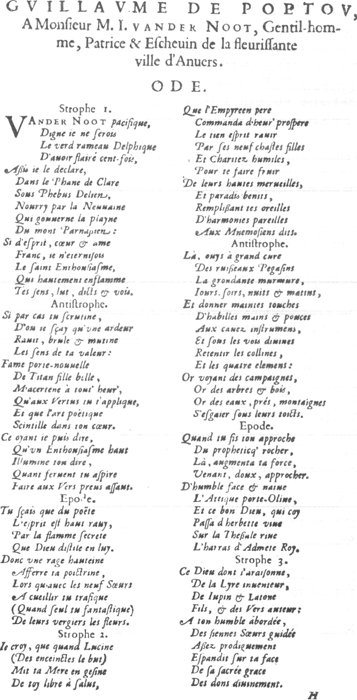 GVILLAVME DE POETOV,
A Monsieur M. I. VANDER NOOT, Gentil-hom-
me, Patrice & Escheuin de la fleurissante
ville d'Anuers.
ODE.
Strophe 1.
VANDER NOOT pacifique,
Digne ie ne serois
Le verd rameau Delphique
D'auoir flairé cent-fois,
Assiu ie le declare,
Dans le Phane de Clare
Sous Phebus Delien,
Nourry par la Neuuaine
Qui gouuerne la playne
Du mont Parnasien:
Si d'esprit, cœur & ame
Franc, ie n'eternisois
Le saint Enthousiasme,
Qui hautement enflamme
Tes sens, lut, dicts & vois.
Antistrophe.
Si par cas tu scrutine,
D'ou ie sçay qu'vne ardeur
Rauit, brule & mutine
Les sens de ta valeur:
Fame porte-nouuelle
De Titan fille belle,
M'acertene à tout' heur',
Qu'aux Vertus tu t'applique,
Et que l'art poëtique
Scintille dans ton cœur.
Ce oyant ie puis dire,
Qu'vn Enthousiasme haut
Illumine ton dire,
Quant feruent tu aspire
Faire aux Vers preus assaut.
Epode.
Tu sçais que du poëte
L'esprit est haut rauy,
Par la flamme secrete
Que Dieu distile en luy.
Donc vne rage hauteine
Afferre ta poictrine,
Lors qu'auec les neuf Sœurs
A cueillir tu trafique
(Quand seul tu fantastique)
De leurs vergiers les fleurs.
Strophe 2.
Ie croy, que quand Lucine
(Des enceinctes le but)
Mit ta Mere en gesine
De toy libre à salut,
Que l'Empyreen pere
Commanda d'heur' prospere
Le tien esprit rauir
Par ses neuf chastes filles
Et Charitez humiles,
Pour te faire fruir
De leurs hautes merueilles,
Et paradis benits,
Remplissant tes oreilles
D'harmonies pareilles
Aux Mnemosiens dits.
Antistrophe.
Là, ouys à grand cure
Des ruisseaux Pegasins
La grondante murmure,
Iours, soirs, nuits & matins,
Et donner maintes touches
D'habilles mains & pouces
Aux cauez instrumens,
Et sous les vois diuines
Retentir les collines,
Et les quatre elemens:
Or voyant des campaignes,
Or des arbres & bois,
Or des eaux, prés, montaignes
S'esgaier sous leurs toicts.
Epode.
Quand tu fis ton approche
Du propheticq' rocher,
Là, augmenta ta force,
Venant, doux, approcher.
D'humble face & naine
L'Attique porte-Oliue,
Et ce bon Dieu, qui coy
Passa d'herbette viue
Sur la Thessale riue
L'harras d'Admete Roy.
Strophe 3.
Ce Dieu dont t'araisonne,
De la Lyre inuenteur,
De Iupin & Latone
Fils, & des Vers auteur:
A ton humble abordée,
Des siennes Sœurs guidée
Assez prodiguement
Espandit sur ta face
De sa sacrée grace
Des dons diuinement.
H